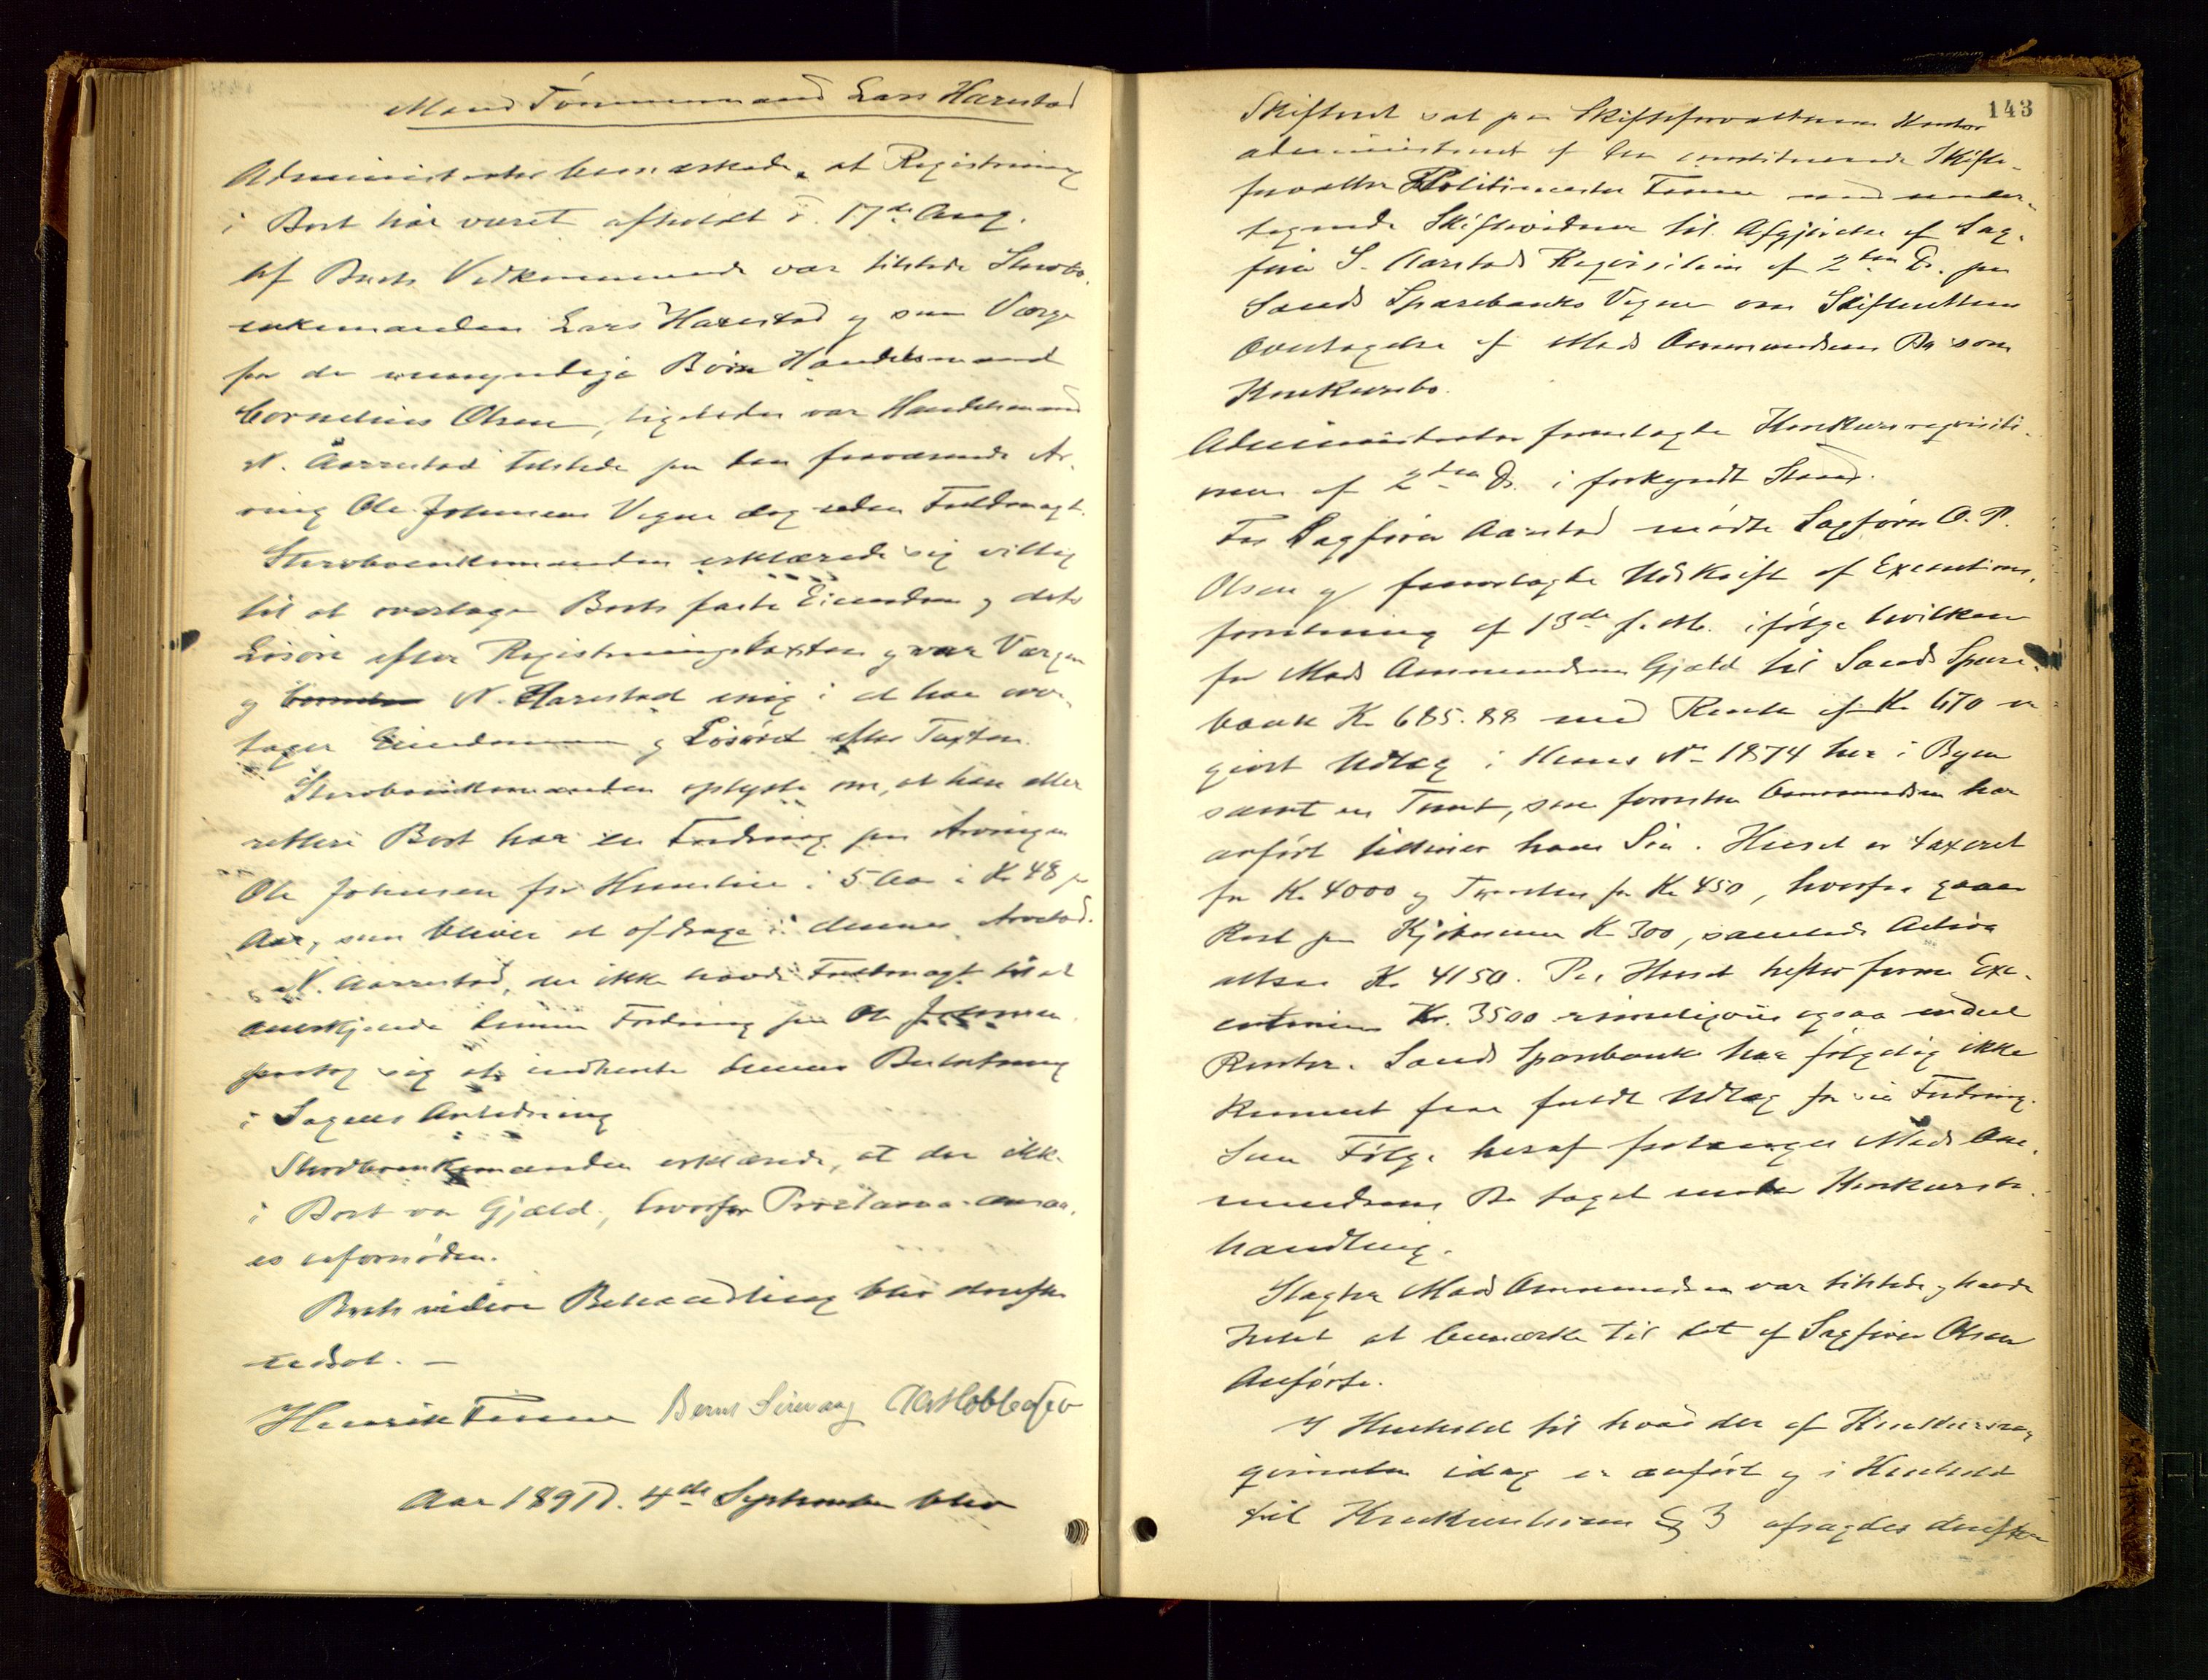 Mand Tømmermand Lars Harestad
Administrator bemærkede, at Registrering
i Boet har været afholdt d. 17de Aug.
Af Boets Vedkommende var tilstede Stervbo-
enkemanden Lars Harestad og som Værge
for de umyndige Børn Handelsmand
Cornelius Olsen, ligeledes var Handelsmand
N. Aarrestad tilstede paa den fraværende Ar-
ving Ole Johnsens Vegne dog uden Fuldmagt.
Stervboenkemanden erklærede sig villig
til at overtage Boets faste Eiendom og dets
Løsøre efter Registreringstaxten og var Værgen
og N. Harestad enig i at han over-
tager Eiendommen og Løsøret efter Taxten.
Stervboenkemanden oplyste om, at han eller
rettere Boet har en Fordring paa Arvingen
Ole Johnsen for Husleie i 5 Aar à Kr 48 pr
Aar, som bliver at afdrage i dennes Arvelod.
N. Aarrestad, der ikke havde Fuldmagt til at
anerkjende denne Fordring paa Ole Johnsen
paatog sig at indhente dennes Beslutning
i Sagens Anledning
Stervboenkemanden erklærede, at der ikke
i Boet var Gjæld, hvorfor Proclama ansaa-
es ufornøden.
Boets videre Behandling blev derefter
udsat. —
Henrik Finne Bernt Sirevaag
Aar 1891 d. 4de September blev
143
Skifteret sat paa Skifteforvalterens Kontor
administreret af den constituerede Skifte-
forvalter Politimester Finne med under-
tegnede Skiftevidner til Afgjørelse af Sag-
fører S. Aarstads Requisition af 2den ds. paa
Sands Sparebanks Vegne om Skifterettens
Overtagelse af Mads Ammundsens Bo som
Konkursbo.
Administrator fremlagde Konkursrequisiti-
onen af 2den ds. i forkyndt Stand.
For Sagfører Aarstad mødte Sagfører O. P.
Olsen og fremlagde Udskrift af Executions-
forretning af 13de f. M. ifølge hvilken
for Mads Ammundsens Gjæld til Sands Spare-
bank Kr 685.88 med Renter af Kr 670 er
gjort Udlæg i Huus No 1874 her i Byen
samt en Tomt, som forresten Ammundsen har
anført tilhører hans Søn. Huset er taxeret
for Kr 4000 og Tomten for Kr 450, hvorfra gaar
Rest paa Kjøbesummen Kr 300, samlede Activa
altsaa Kr 4150. Paa Huset hefter forud Exe-
cutionen Kr. 3500 rimeligviis ogsaa endeel
Renter. Sands Sparebank har følgelig ikke
kunnet faae fuldt Udlæg for sin Fordring.
Som Følge heraf forlanges Mads Am-
mundsens Bo taget under Konkursbe-
handling.
Slagter Mads Ammundsen var tilstede og havde
Intet at bemærke til det af Sagfører Olsen
Anførte.
I Henhold til hvad der af Konkursre-
qvirenten idag er anført og i Henhold
til Konkursloven § 3 afsagdes derefter